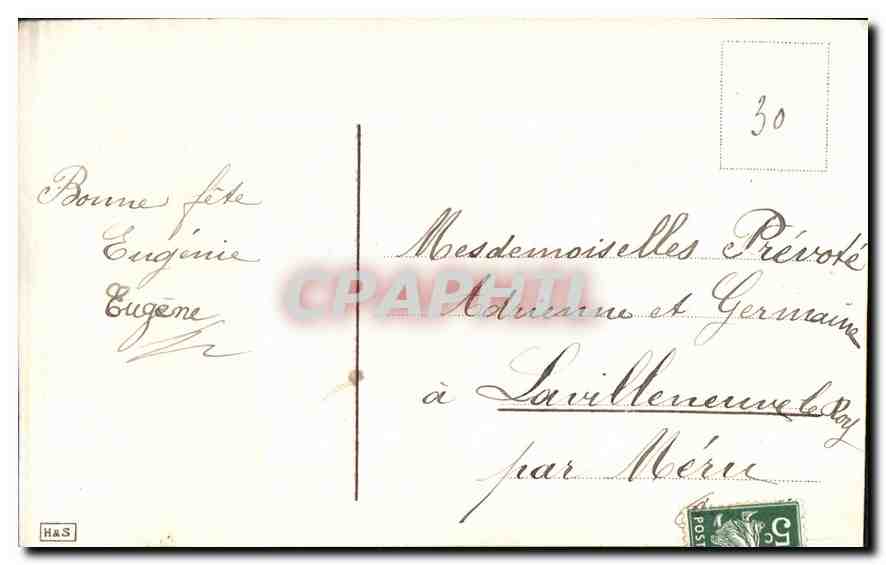 30
Bonne fête
Eugénie
Eugène
Mesdemoiselles Prévoté
Adrienne et Germaine
à Lavilleneuve le Roy
par Méru
H&S
5c
POST
CPAPHIL